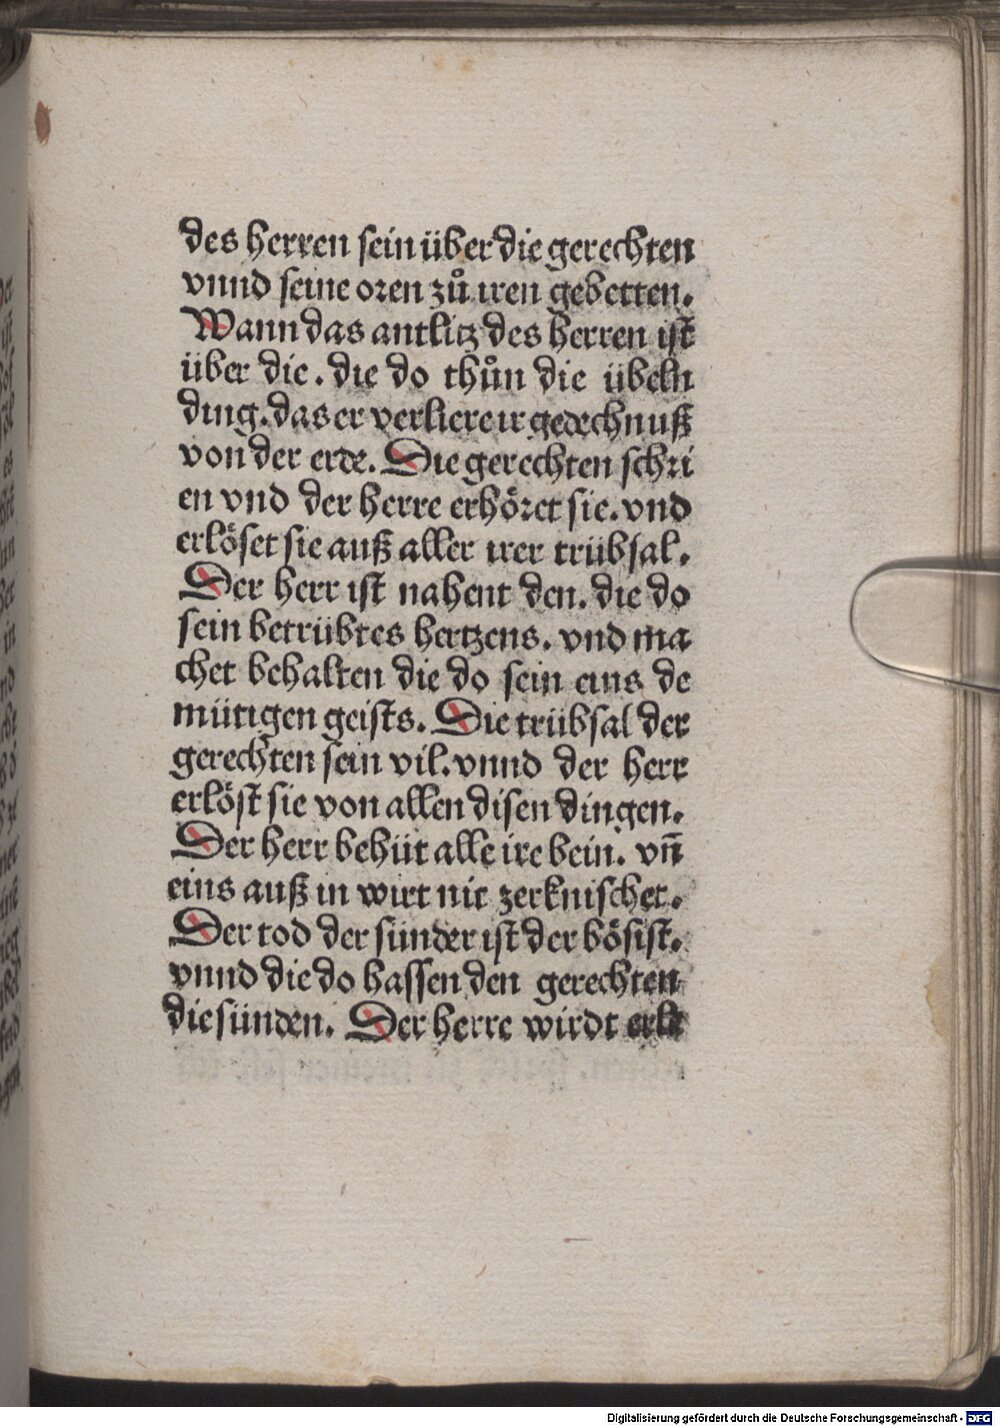 des herren sein über die gerechten
vnnd seine oren zů iren gebetten.
Wann das antlitz des herren ist
über die. die do thůn die übeln
ding. das er verliere ir gedechnuß
von der erde. Die gerechten schri
en vnd der herre erhöret sie. vnd
erlöset sie auß aller irer trübsal.
Der herr ist nahent den. die do
sein betrübtes hertzens. vnd ma
chet behalten die do sein eins de
mütigen geists. Die trübsal der
gerechten sein vil. vnnd der herr
erlöst sie von allen disen dingen.
Der herr behüt alle ire bein. vn̄
eins auß in wirt nit zerknischet.
Der tod der sünder ist der bösist.
vnnd die do hassen den gerechten
die sünden. Der herre wirdt erlö
Digitalisierung gefördert durch die Deutsche Forschungsgemeinschaft - DFG